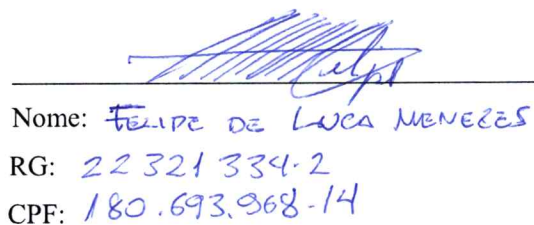 Nome: FELIPE DE LUCA MENEZES
RG: 22 321 334-2
CPF: 180.693.968-14